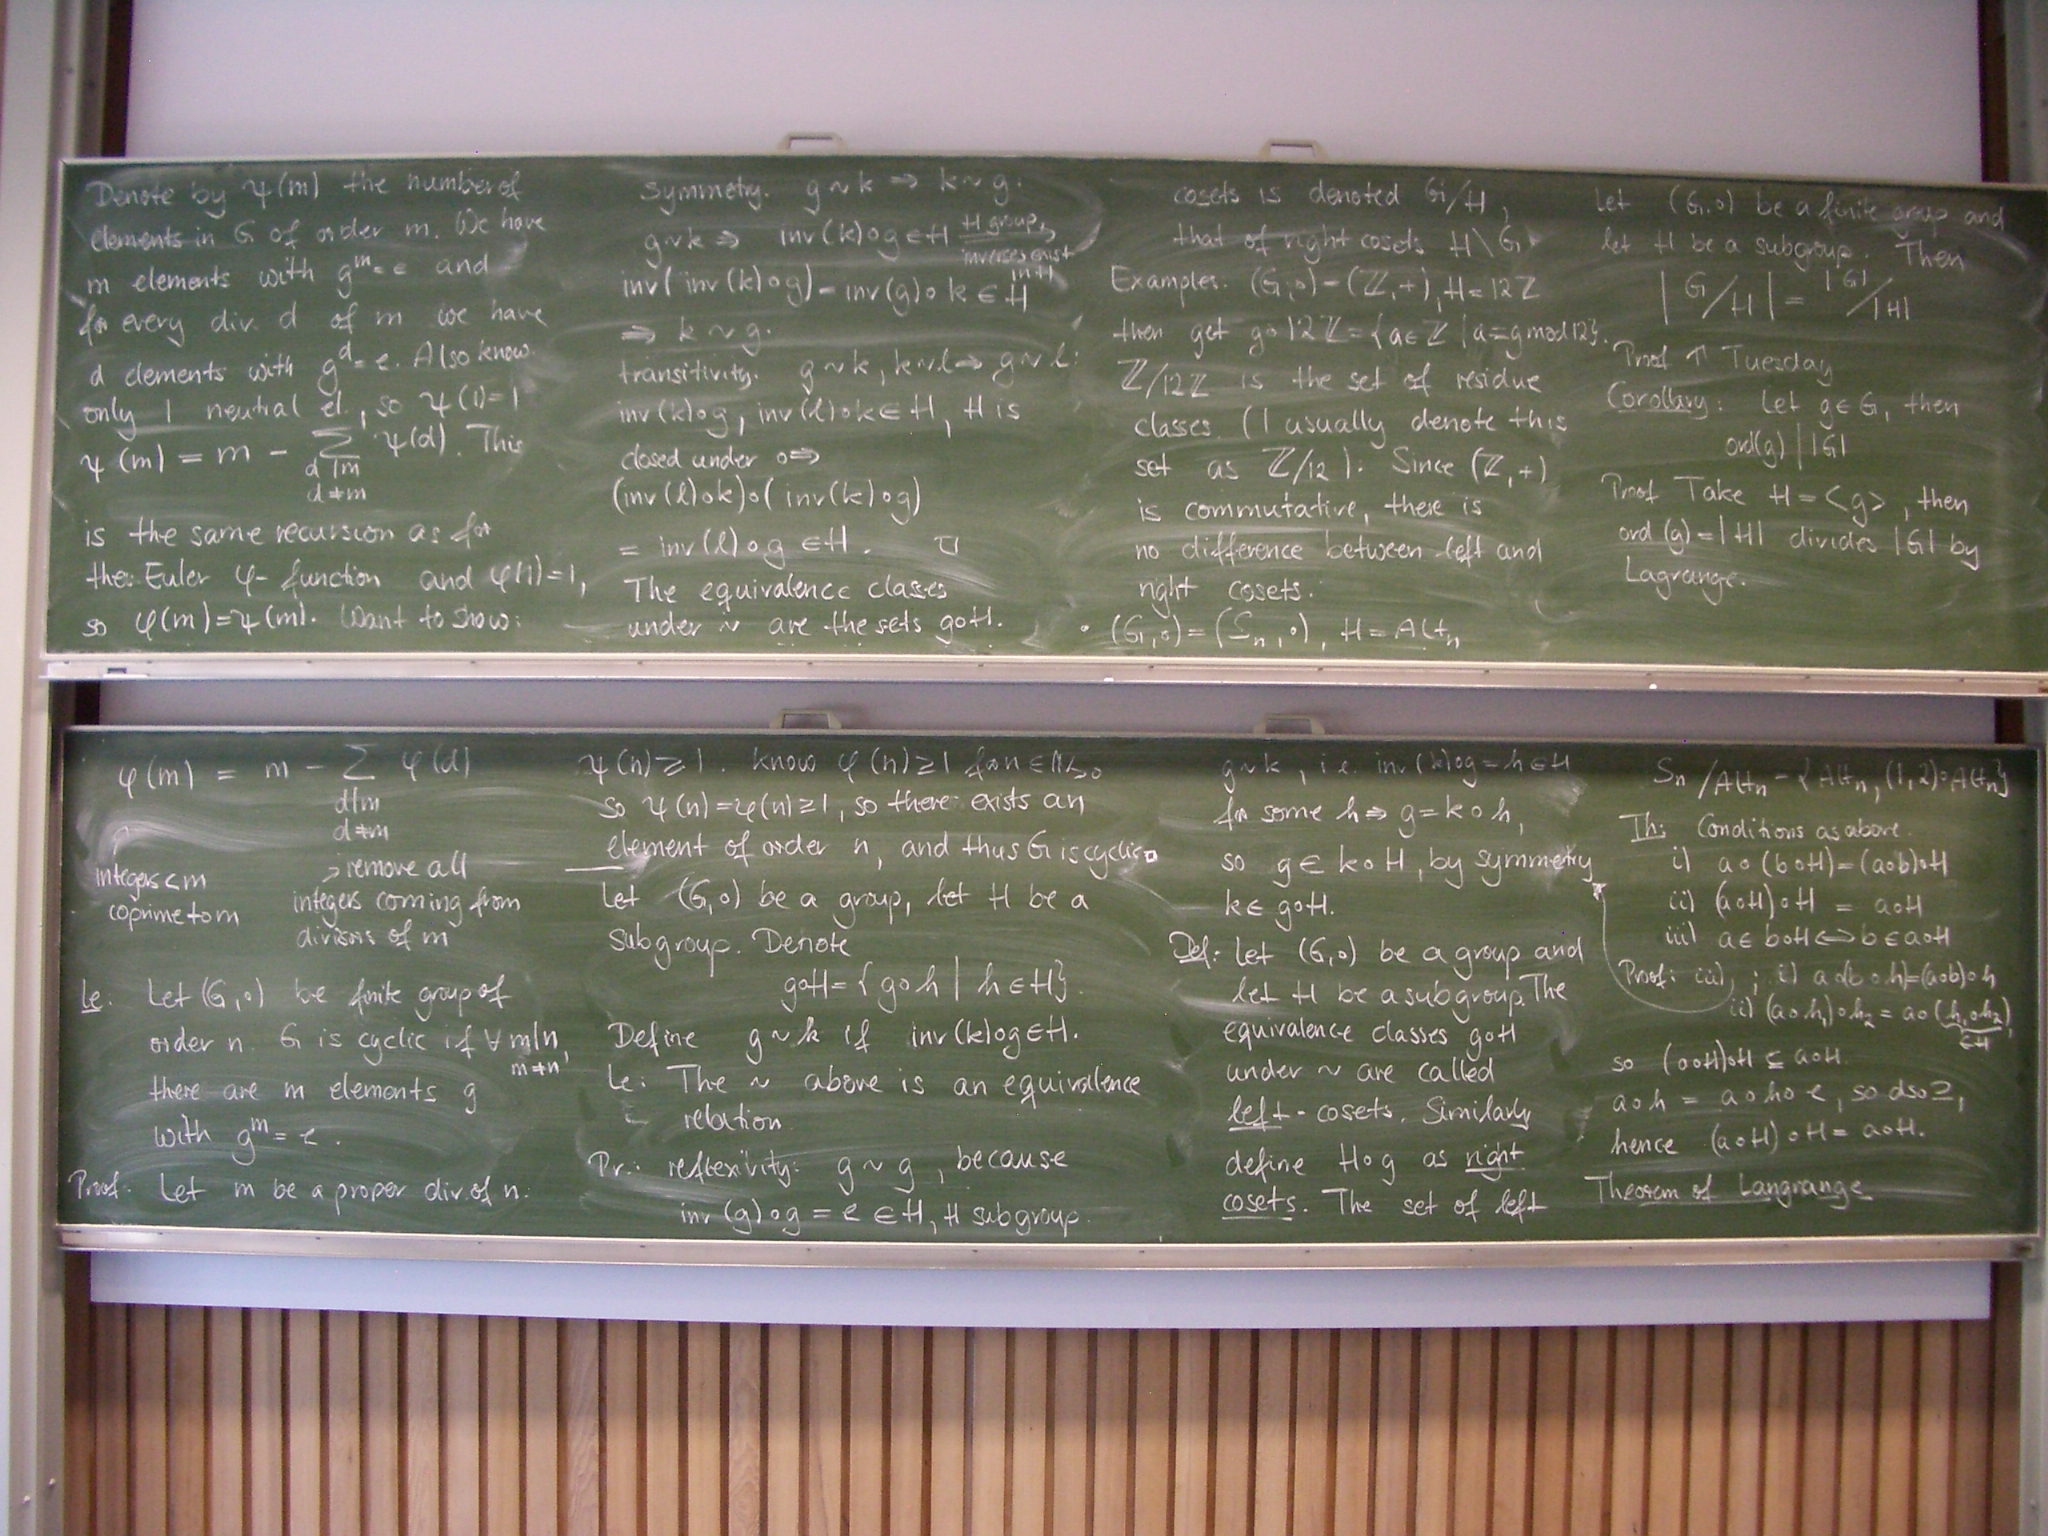 Denote by ψ(m) the number of
elements in G of order m. We have
m elements with g^m = e and
for every div. d of m we have
d elements with g^d = e. Also know
only 1 neutral el., so ψ(1)=1
ψ(m) = m - Σ ψ(d). This
d|m
d≠m
is the same recursion as for
the Euler φ-function and φ(1)=1,
so φ(m)=ψ(m). Want to show:
symmetry. g~k ⇒ k~g.
g~k ⇒ inv(k)∘g∈H H group,
inverses exist
in H
inv(inv(k)∘g) = inv(g)∘k ∈ H
⇒ k ~ g.
transitivity. g~k, k~l ⇒ g~l:
inv(k)∘g, inv(l)∘k∈H, H is
closed under ∘ ⇒
(inv(l)∘k)∘(inv(k)∘g)
= inv(l)∘g ∈H. □
The equivalence classes
under ~ are the sets g∘H.
cosets is denoted G/H,
that of right cosets H\G
Examples. (G,∘) = (ℤ,+), H=12ℤ
then get g∘12ℤ = {a∈ℤ | a≡g mod 12}.
ℤ/12ℤ is the set of residue
classes. (I usually denote this
set as ℤ/12). Since (ℤ,+)
is commutative, there is
no difference between left and
right cosets.
• (G,∘) = (S_n,∘), H = Alt_n
Let (G,∘) be a finite group and
let H be a subgroup. Then
|G/H| = |G|/|H|
Proof ↑ Tuesday
Corollary: Let g∈G, then
ord(g) | |G|
Proof Take H = <g>, then
ord(g) = |H| divides |G| by
Lagrange.
φ(m) = m - Σ φ(d)
d|m
d≠m
↑
integers < m
coprime to m
→ remove all
integers coming from
divisors of m
Le: Let (G,∘) be finite group of
order n. G is cyclic if ∀ m|n,
m≠n
there are m elements g
with g^m = e.
Proof: Let m be a proper div. of n.
ψ(n) ≥ 1. know φ(n) ≥ 1 for n∈ℕ>0
so ψ(n) = φ(n) ≥ 1, so there exists an
element of order n, and thus G is cyclic □
Let (G,∘) be a group, let H be a
subgroup. Denote
g∘H = {g∘h | h∈H}.
Define g~k if inv(k)∘g∈H.
Le: The ~ above is an equivalence
relation.
Pr.: reflexivity: g~g, because
inv(g)∘g = e ∈H, H subgroup.
g~k, i.e. inv(k)∘g = h∈H
for some h ⇒ g = k∘h,
so g∈ k∘H, by symmetry
k∈ g∘H.
Def: Let (G,∘) be a group and
let H be a subgroup. The
equivalence classes g∘H
under ~ are called
left-cosets. Similarly
define H∘g as right
cosets. The set of left
S_n/Alt_n = {Alt_n, (1,2)∘Alt_n}
Th: Conditions as above.
i) a∘(b∘H) = (a∘b)∘H
ii) (a∘H)∘H = a∘H
iii) a∈ b∘H ⇔ b∈a∘H
Proof: iii) ; i) a∘(b∘h) = (a∘b)∘h
ii) (a∘h₁)∘h₂ = a∘(h₁∘h₂),
∈H
so (a∘H)∘H ⊆ a∘H.
a∘h = a∘h∘e, so also ⊇,
hence (a∘H)∘H = a∘H.
Theorem of Langrange